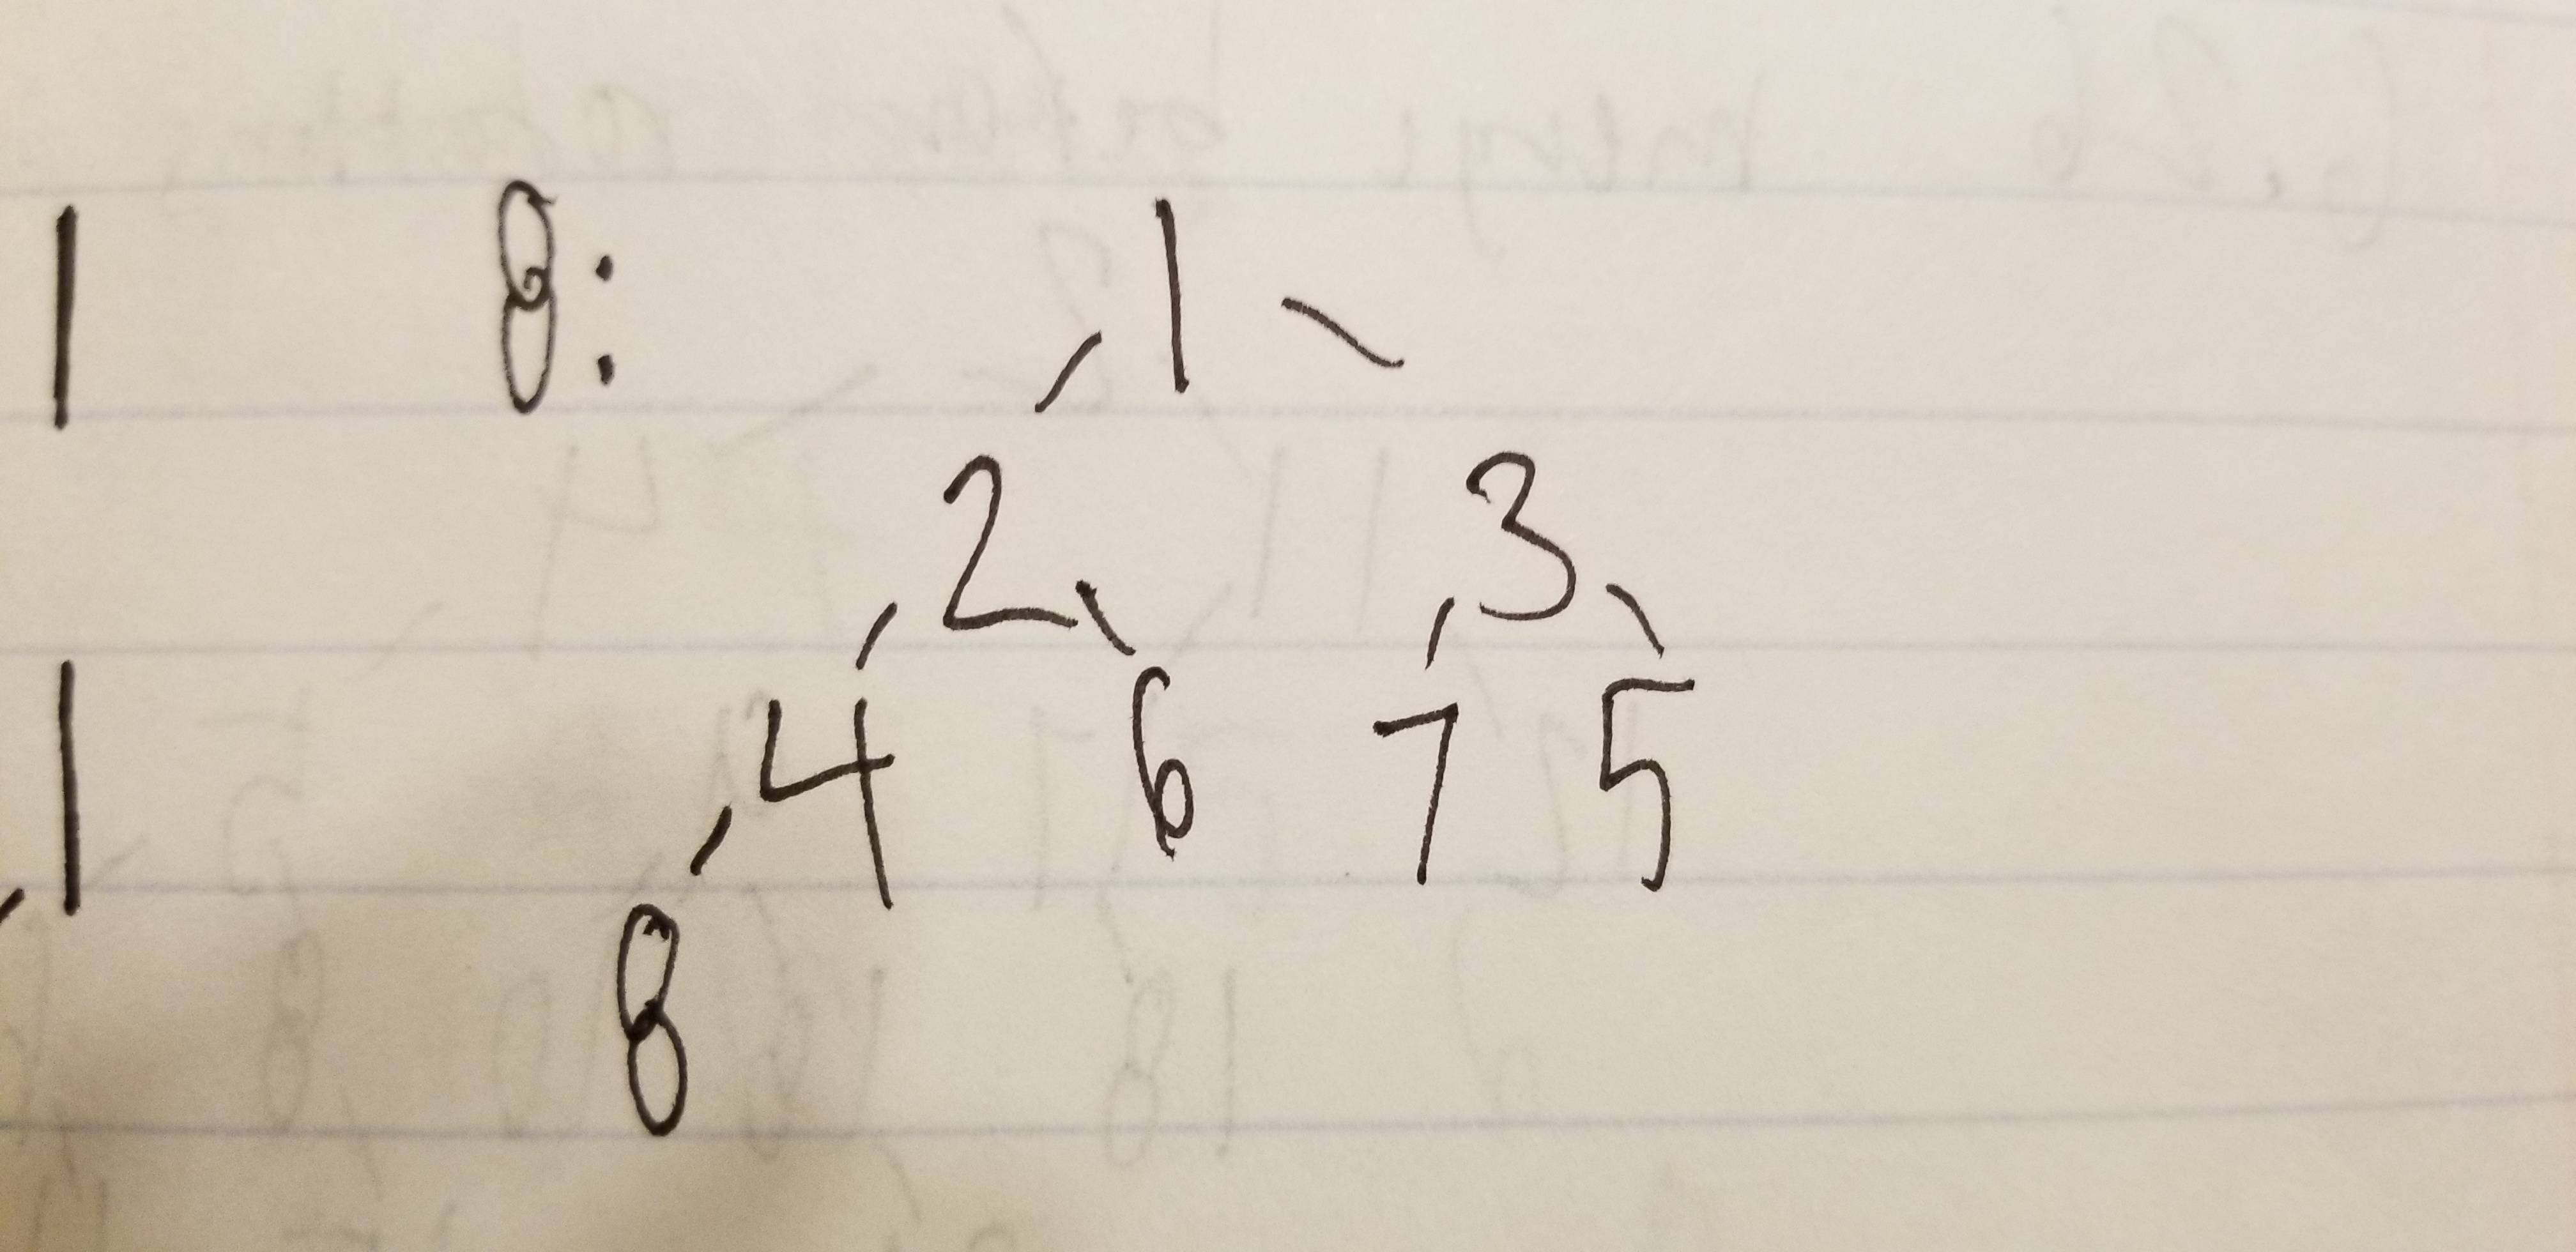 1 8: 1
2 3
1 4 6 7 5
8